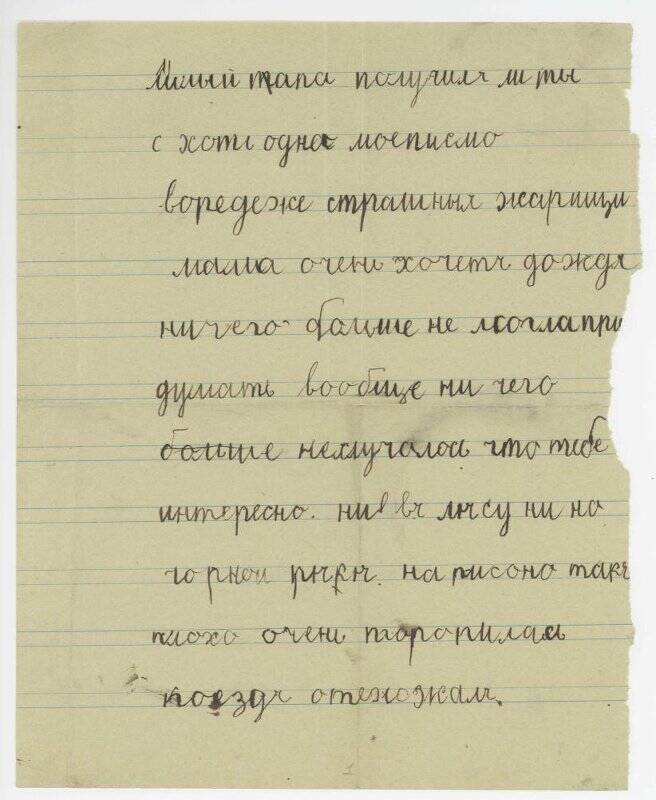 Милый папа получилъ ли ты
с хоть одно моеписмо
воредеже страшныя жарищи
мама очень хочетъ дождя
ничего болше не могла при
думать вообще ни чего
болше неслучалось что тебе
интересно. ни въ лѣсу ни на
горной рѣкѣ. написоно такъ
плохо очень торопилась
поездъ отежжалъ.
1